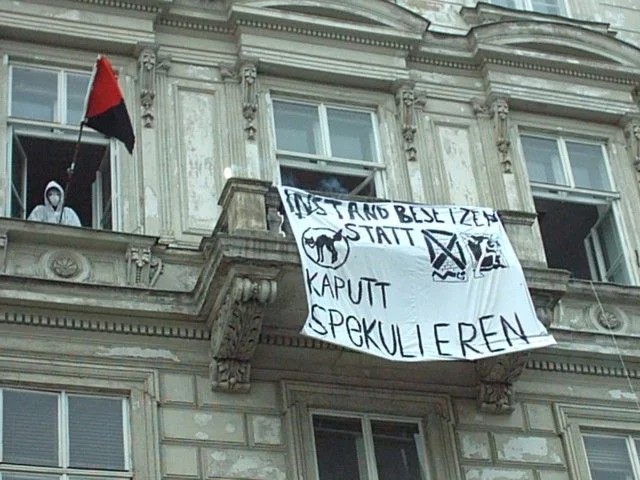 INSTAND BESETZEN
STATT
KAPUTT
SPEKULIEREN